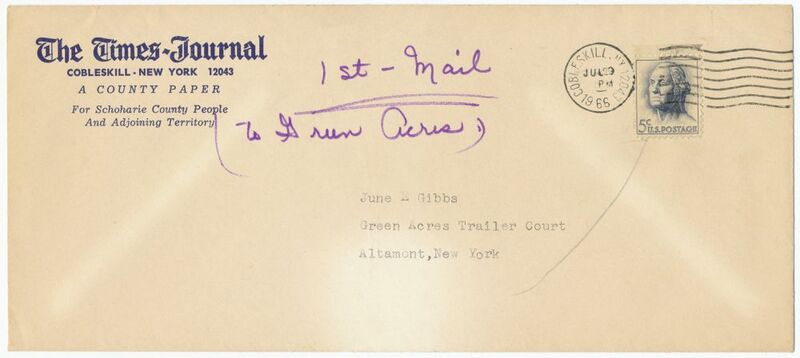 The Times-Journal
COBLESKILL - NEW YORK 12043
A COUNTY PAPER
For Schoharie County People
And Adjoining Territory
1st - Mail
(to Green Acres)
COBLESKILL, NY 12043
JUL 29
PM
1966
5¢
U.S. POSTAGE
June E Gibbs
Green Acres Trailer Court
Altamont, New York